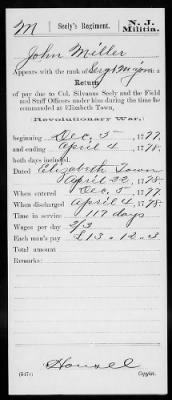 M Seely's Regiment. N. J. Militia.
John Miller
Appears with the rank of Sergt Major on a
Return
of pay due to Col. Silvanus Seely and the Field
and Staff Officers under him during the time he
commanded at Elizabeth Town,
(Revolutionary War,)
beginning Dec. 5, 1777,
and ending April 4, 1778,
both days included.
Dated Elizabeth Town
April 22, 1778.
When entered Dec. 5, 1777.
When discharged April 4, 1778.
Time in service 117 days
Wages per day 2/3
Each man's pay £13..12..3
Total amount
Remarks:
Copyist.